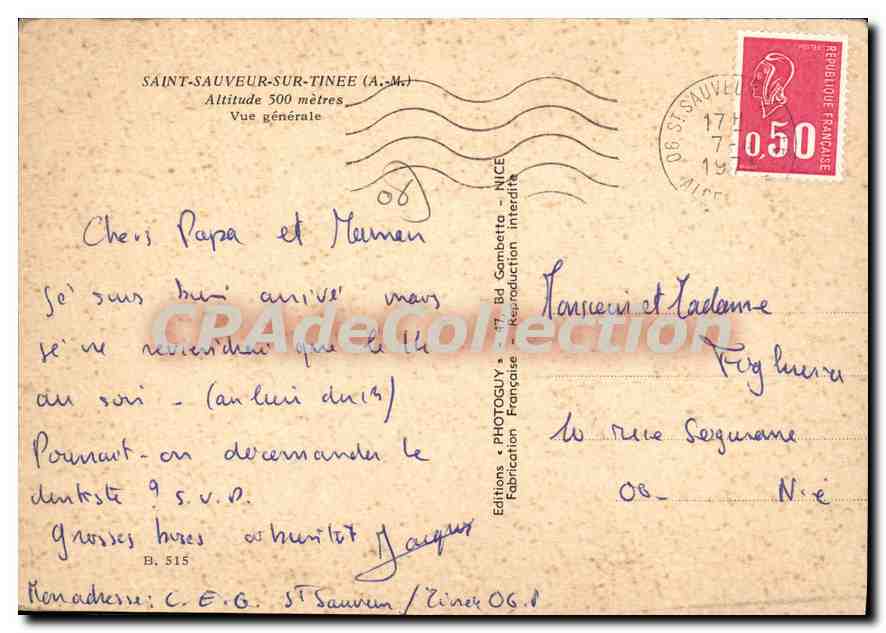 SAINT-SAUVEUR-SUR-TINEE (A.-M.)
Altitude 500 mètres
Vue générale
06
Chers Papa et Maman
Je suis bien arrivé mais
je ne reviendrai que le 14
au soir - (au lieu du 13)
Pourrait-on décommander le
dentiste ? S.V.P.
Grosses bises à bientôt Jacques
B. 515
Mon adresse : C. E. G. St Sauveur / Tinée 06.
Editions « PHOTOGUY » - 17, Bd Gambetta - NICE
Fabrication Française - Reproduction interdite
06 ST SAUVEU
17H
7-
197
REPUBLIQUE FRANÇAISE
0,50
Monsieur et Madame
10 rue Ségurane
06- Nice
CPAdeCollection